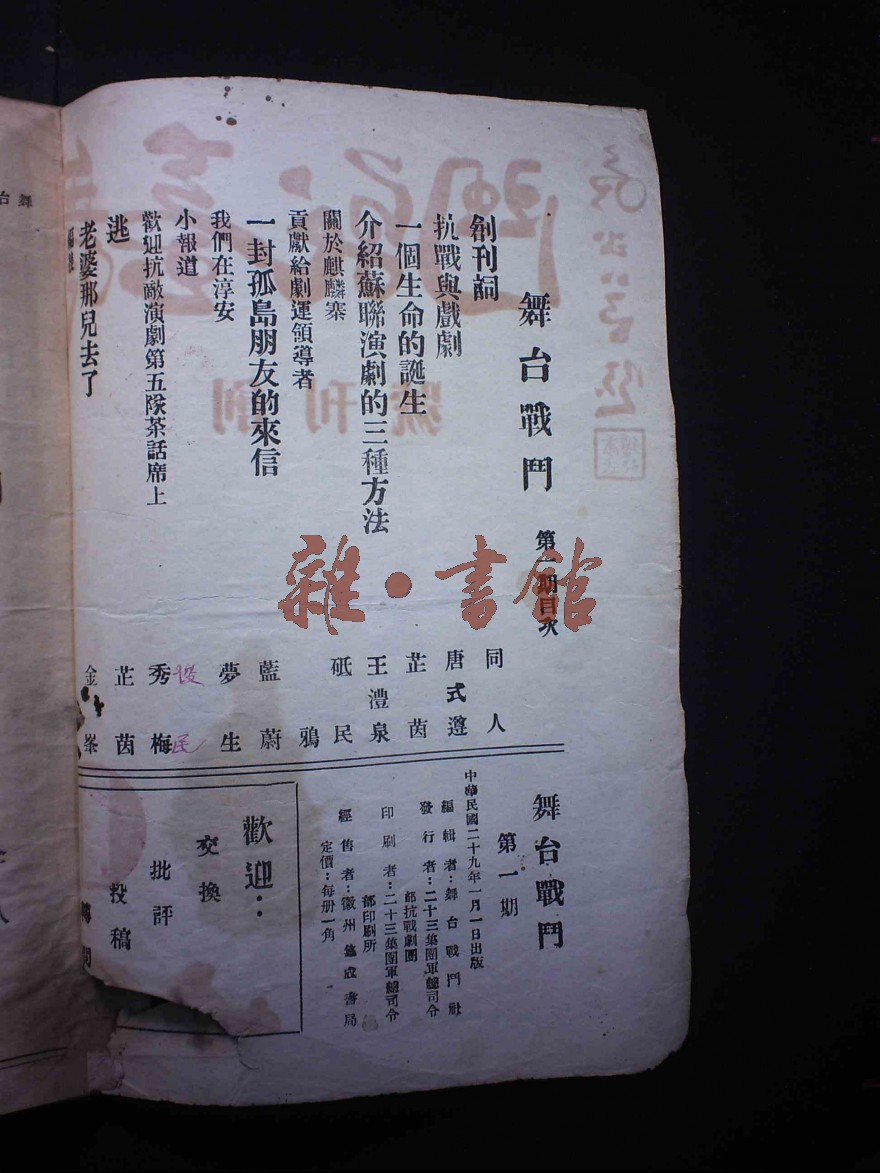 舞台戰鬥 第一期目次
創刊詞 同人
抗戰與戲劇 唐式遵
一個生命的誕生 芷茵
介紹蘇聯演劇的三種方法 王澧泉
關於麒麟寨 砥民
貢獻給劇運領導者 鴉
一封孤島朋友的來信 藍蔚
我們在淳安 夢生
小報道 民
歡迎抗敵演劇第五隊茶話席上 秀梅
逃 芷茵
老婆那兒去了 金峯
舞台戰鬥
第一期
中華民國二十九年一月一日出版
編輯者：舞台戰鬥社
發行者：二十三集團軍總司令
部抗戰劇團
印刷者：二十三集團軍總司令
部印刷所
經售者：徽州集成書局
定價：每册一角
歡迎：
交換
批評
投稿
創刊號
雜·書館
舞台